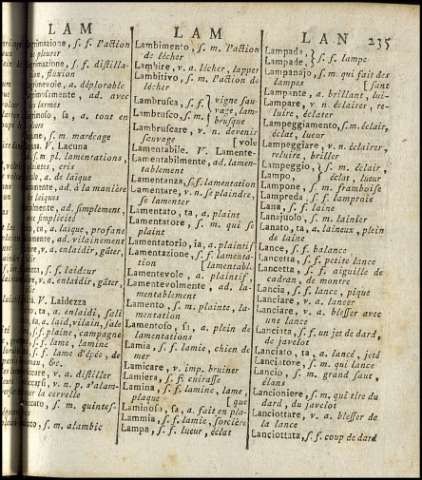 LAM
LAM
LAN
235
s. f. l'action
pleurer
s. f. distilla-
, fluxion
, a. déplorable
, ad. avec
larmes
, sa, a. tout en
s. m. marcage
V. Lacuna
s. m. pl. lamentations,
cris
a. de laïque
ad. à la manière
laïques
ad. simplement,
simplicité
ta, a. laïque, profane
ad. vilainement
v. a. enlaidir, gâter,
s. f. laideur
v. a. enlaidir, gâter,
V. Laidezza
ta, a. enlaidi, sali
a. laid, vilain, sale
s. f. plaine, campagne
s. f. lame, lamine
s. f. lame d'épée, de
&c.
v. a. distiller
v. n. p. s'alam-
la cervelle
s. m. quintes-
s. m. alambic
Lambimento, s. m. l'action
de lécher
Lambire, v. a. lécher, lapper
Lambitivo, s. m. l'action de
lécher
Lambrusca, s. f. } vigne sau-
Lambrusco, s. m. } vage, lam-
brusque
Lambruscare, v. n. devenir
sauvage [vole
Lamentabile. V. Lamente-
Lamentabilmente, ad. lamen-
tablement
Lamentanza, s. f. lamentation
Lamentare, v. n. se plaindre,
se lamenter
Lamentato, ta, a. plaint
Lamentatore, s. m. qui se
plaint
Lamentatorio, ia, a. plaintif
Lamentazione, s. f. lamenta-
tion [lamentabl.
Lamentevole, a. plaintif,
Lamentevolmente, ad. la-
mentablement
Lamento, s. m. plainte, la-
mentation
Lamentoso, sa, a. plein de
lamentations
Lamia, s. f. lamie, chien de
mer
Lamicare, v. imp. bruiner
Lamiera, s. f. cuirasse
Lamina, s. f. lamine, lame,
plaque [que
Laminosa, sa, a. fait en pla-
Lammia, s. f. lamie, sorcière
Lampa, s. f. lueur, éclat
Lampada, }
Lampade, } s. f. lampe
Lampanajo, s. m. qui fait des
lampes [sant
Lampante, a. brillant, lui-
Lampare, v. n. éclairer, re-
luire, éclater
Lampeggiamento, s. m. éclair,
éclat, lueur
Lampeggiare, v. n. éclairer,
reluire, briller
Lampeggio, } s. m. éclair,
Lampo, } éclat, lueur
Lampone, s. m. framboise
Lampreda, s. f. lamproie
Lana, s. f. laine
Lanajuolo, s. m. lainier
Lanato, ta, a. laineux, plein
de laine
Lance, s. f. balance
Lancetta, s. f. petite lance
Lancetta, s. f. aiguille de
cadran, de montre
Lancia, s. f. lance, pique
Lanciare, v. a. lancer
Lanciare, v. a. blesser avec
une lance
Lanciata, s. f. un jet de dard,
de javelot
Lanciato, ta, a. lancé, jeté
Lanciatore, s. m. qui lance
Lancio, s. m. grand saut,
élans
Lancioniere, s. m. qui tire du
dard, du javelot
Lanciottare, v. a. blesser de
la lance
Lanciottata, s. f. coup de dard